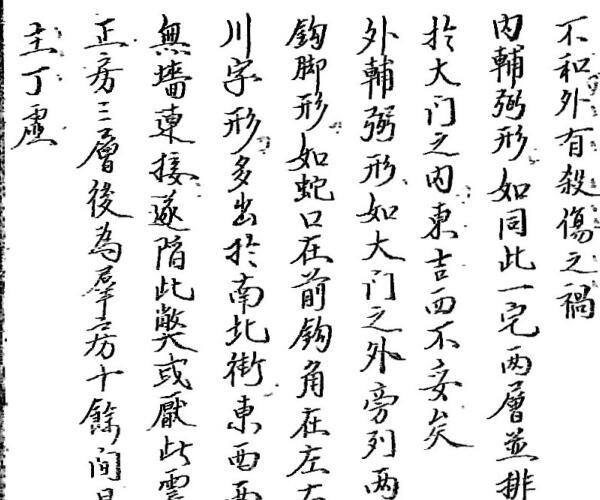 不和外有殺傷之禍
內輔弼形如同此一宅两層並排
於大门之內東吉西不妥矣
外輔弼形如大门之外旁列两
鈎脚形如蛇口在前鈎角在左右
川字形多出於南北街東西两
無墻東接遂陷此獘或厭此雲
正房三層後為羣房十餘间是
主丁虛